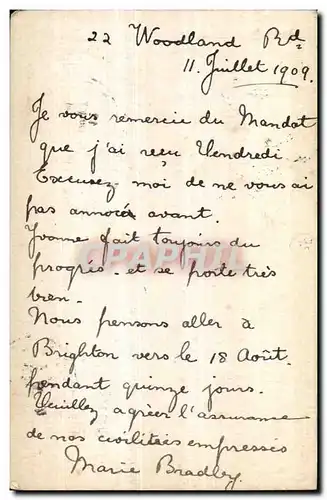 22 Woodland Rd
11. Juillet 1909.
Je vous remercie du Mandat
que j'ai reçu Vendredi
Excusez moi de ne vous ai
pas annoncé avant.
Yvonne fait toujours du
progrès. et se porte très
bien.
Nous pensons aller à
Brighton vers le 18 Août.
pendant quinze jours.
Veuillez agréer l'assurance
de nos civilitées empressés
Marie Bradley.